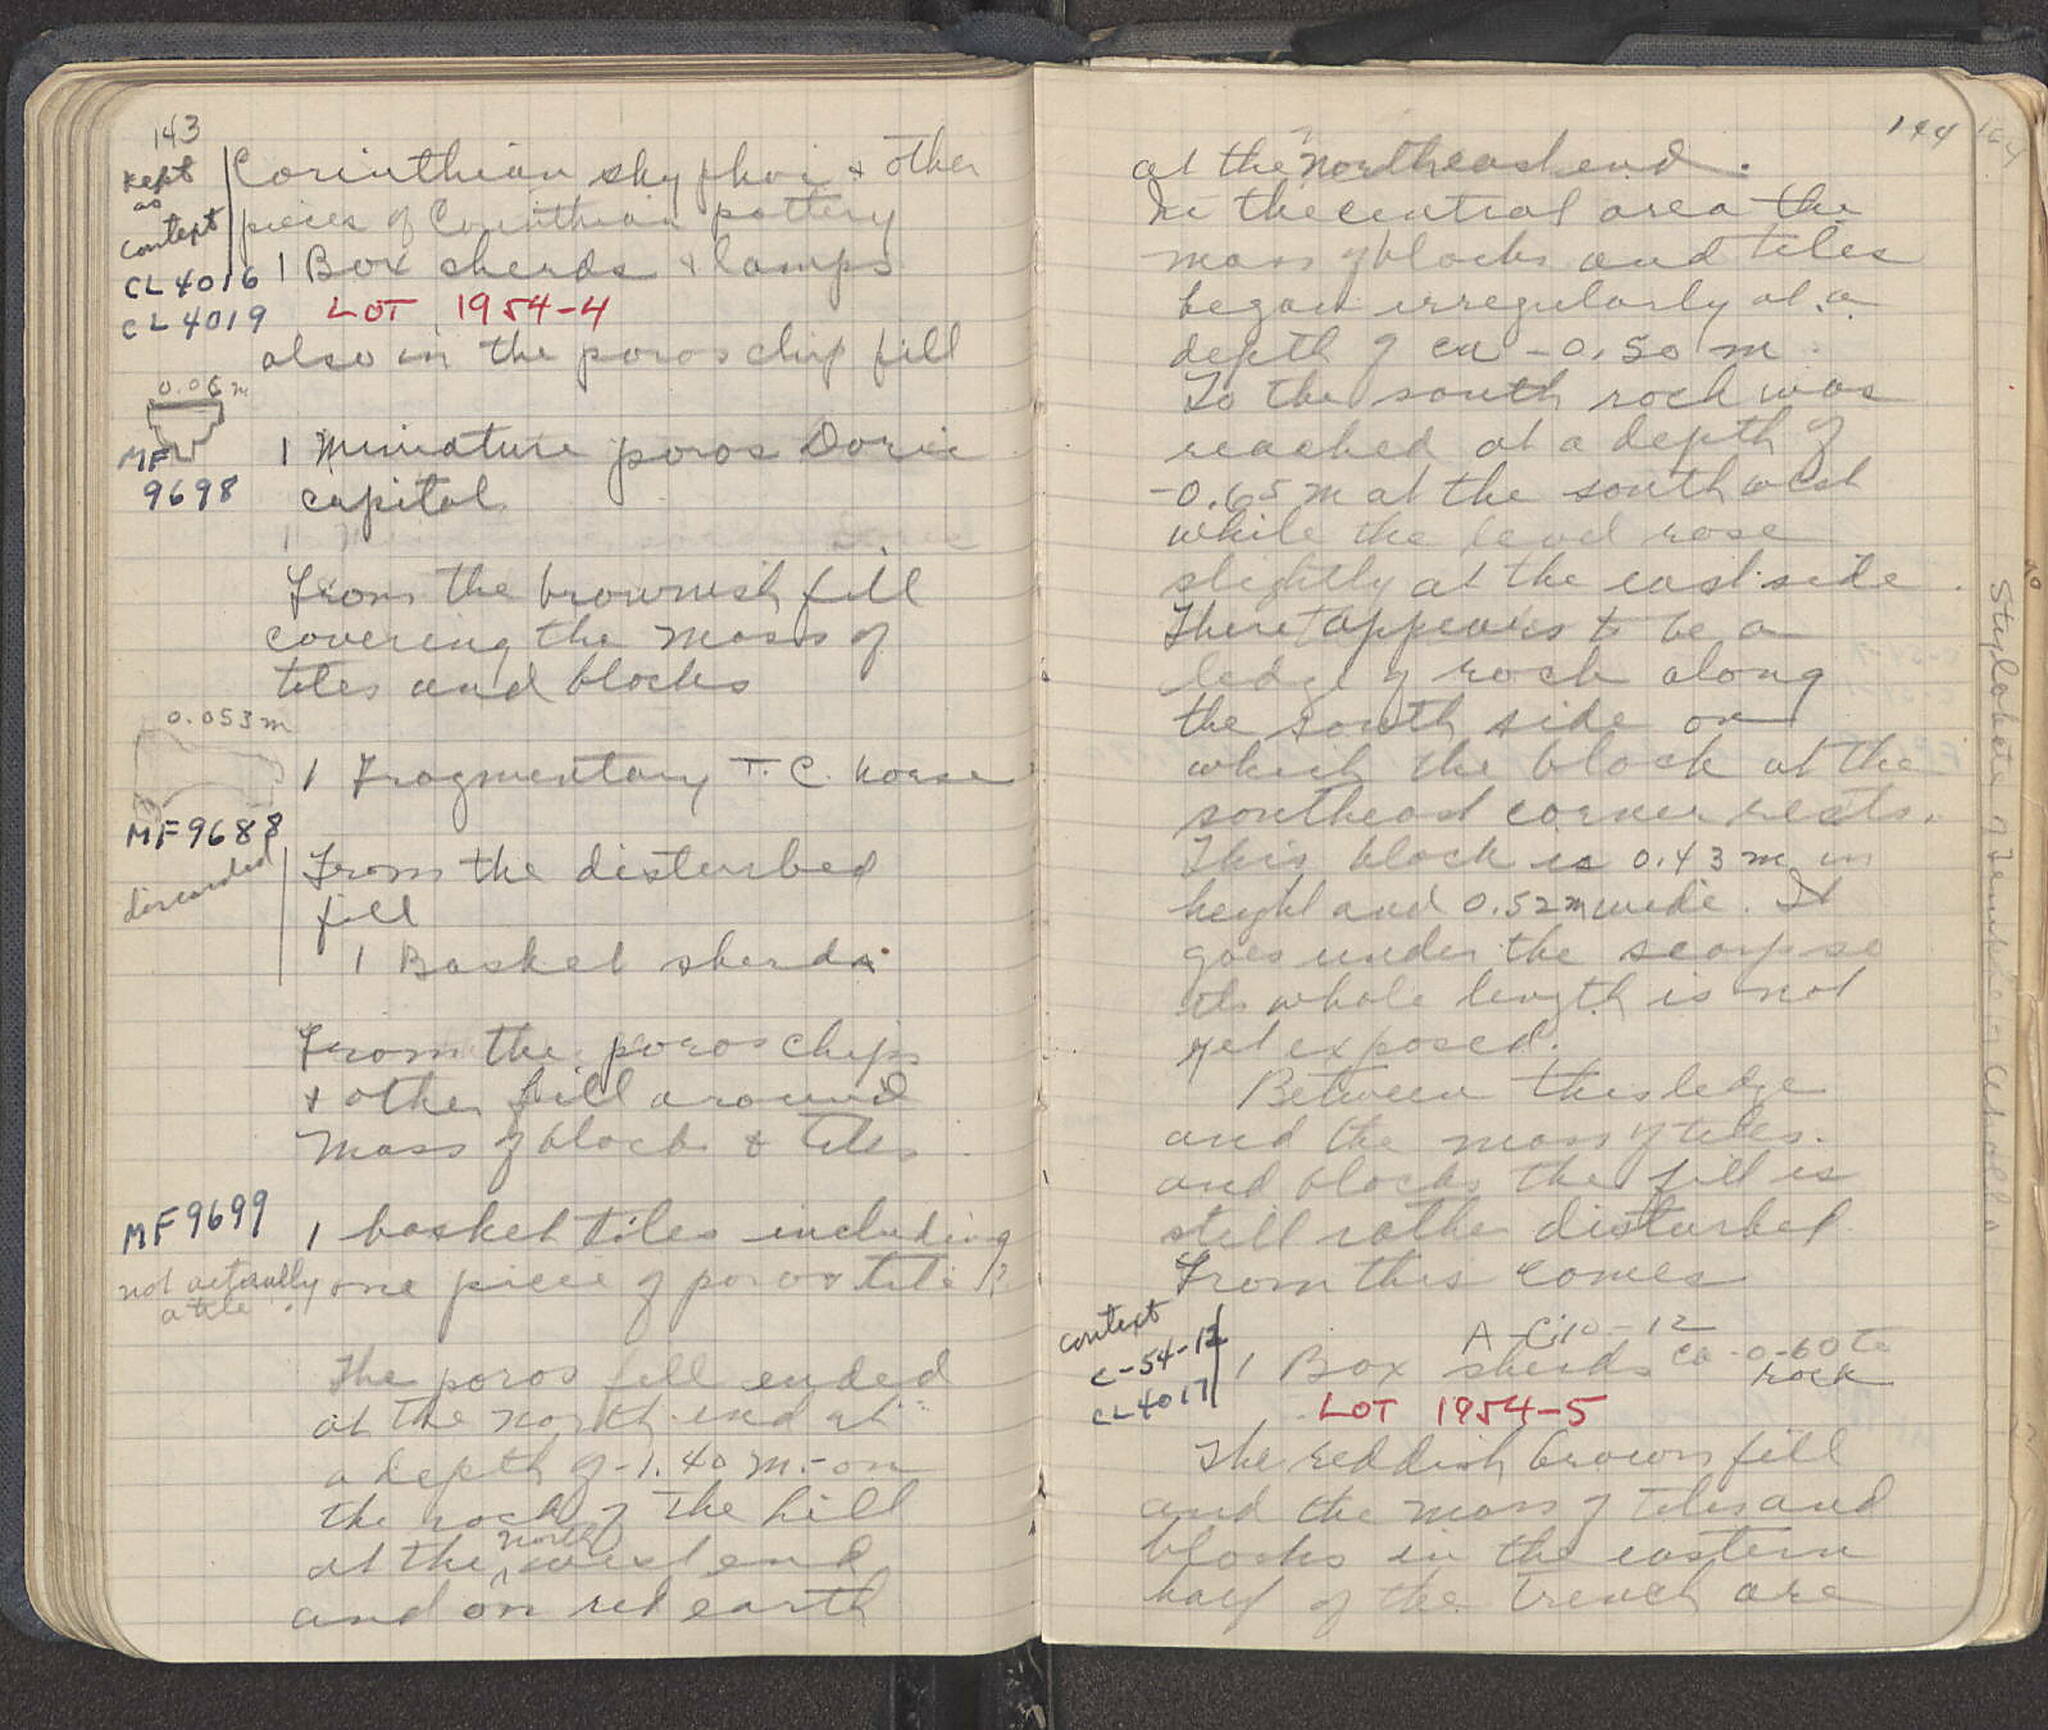 143
Kept
as
context
Corinthian skyphoi + other
pieces of Corinthian pottery
CL 4016
1 Box sherds + lamps
CL 4019
LOT 1954-4
also in the poros chip fill
0.06 m
MF
9698
1 Miniature poros Doric
capital
From the brownish fill
covering the mass of
tiles and blocks
0.053 m
1 Fragmentary T.C. horse
MF9688
discarded
From the disturbed
fill
1 Basket sherds
From the poros chips
+ other fill around
mass of blocks & tiles
MF9699
1 basket tiles including
one piece of poros tile
not actually
a tile.
The poros fill ended
at the north end at
a depth of -1.40 m. - on
the rock of the hill
north
at the west end
and on red earth
144
at the northeast end.
In the central area the
mass of blocks and tiles
began irregularly at a
depth of ca -0.50 m.
To the south rock was
reached at a depth of
-0.65 m at the southwest
while the level rose
slightly at the east side.
There appears to be a
ledge of rock along
the south side on
which the block at the
southeast corner rests.
This block is 0.43 m in
height and 0.52 m wide. It
goes under the scarp so
its whole length is not
yet exposed.
Between this ledge
and the mass of tiles
and blocks the fill is
still rather disturbed
From this comes
context
C-54-12
CL4017
A-C:10-12
1 Box sherds ca -0.60 to
rock
LOT 1954-5
The reddish brown fill
and the mass of tiles and
blocks in the eastern
half of the trench are
Stylobate of Temple